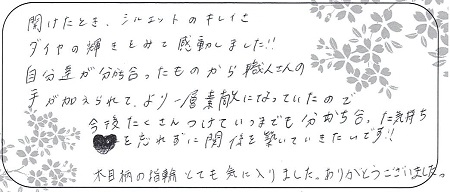 開けたとき、シルエットのキレイさ
ダイヤの輝きをみて感動しました!!
自分達が分かち合ったものから職人さんの
手が加えられて、より一層素敵になっていたので
今後たくさんつけていつまでも分かち合った気持ち
を忘れずに関係を築いていきたいです!!
木目柄の指輪とても気に入りました。ありがとうございました。